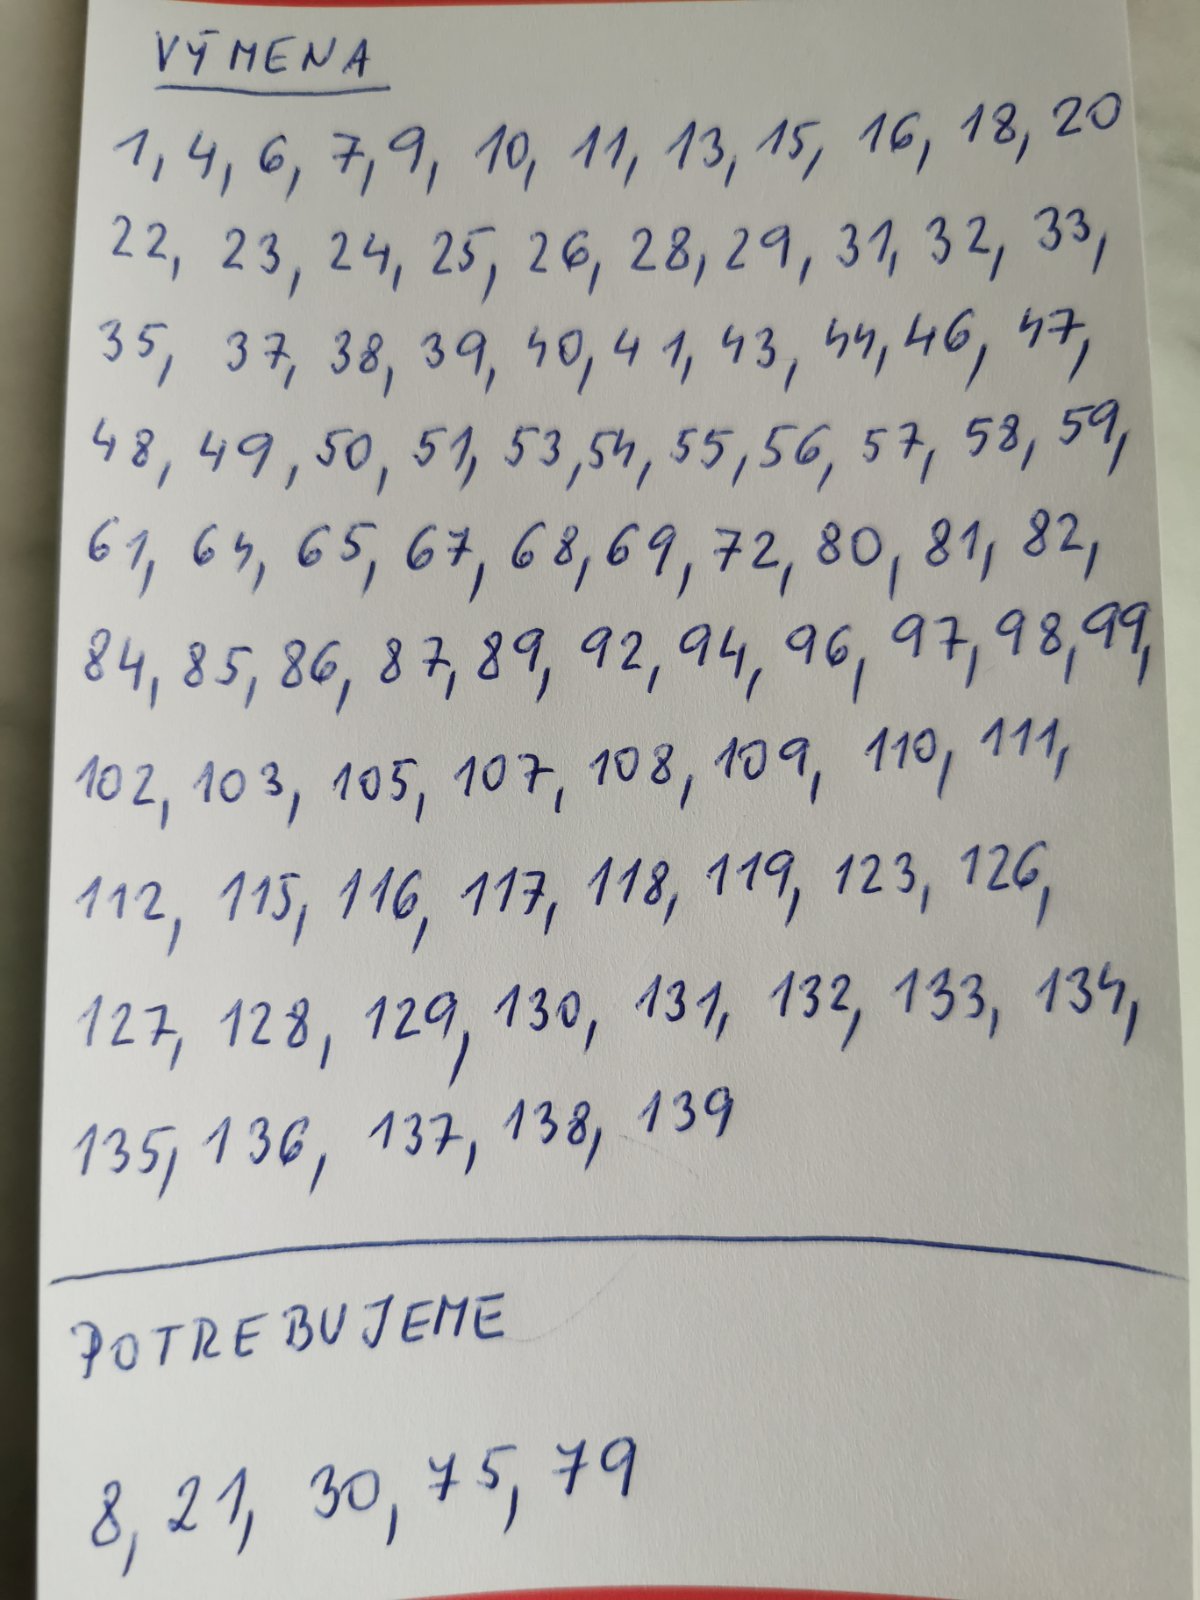 VÝMENA
1, 4, 6, 7, 9, 10, 11, 13, 15, 16, 18, 20
22, 23, 24, 25, 26, 28, 29, 31, 32, 33,
35, 37, 38, 39, 40, 41, 43, 44, 46, 47,
48, 49, 50, 51, 53, 54, 55, 56, 57, 58, 59,
61, 64, 65, 67, 68, 69, 72, 80, 81, 82,
84, 85, 86, 87, 89, 92, 94, 96, 97, 98, 99,
102, 103, 105, 107, 108, 109, 110, 111,
112, 115, 116, 117, 118, 119, 123, 126,
127, 128, 129, 130, 131, 132, 133, 134,
135, 136, 137, 138, 139
POTREBUJEME
8, 21, 30, 75, 79